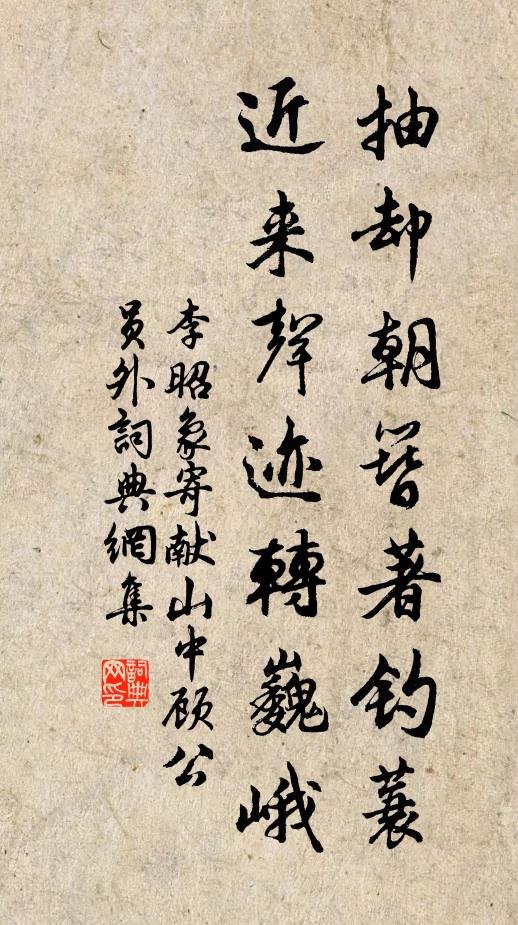 抽却朝簪著钓蓑
近来聲迹轉巍峨
李昭象寄献山中顾公
员外詞典網集
詞典网印